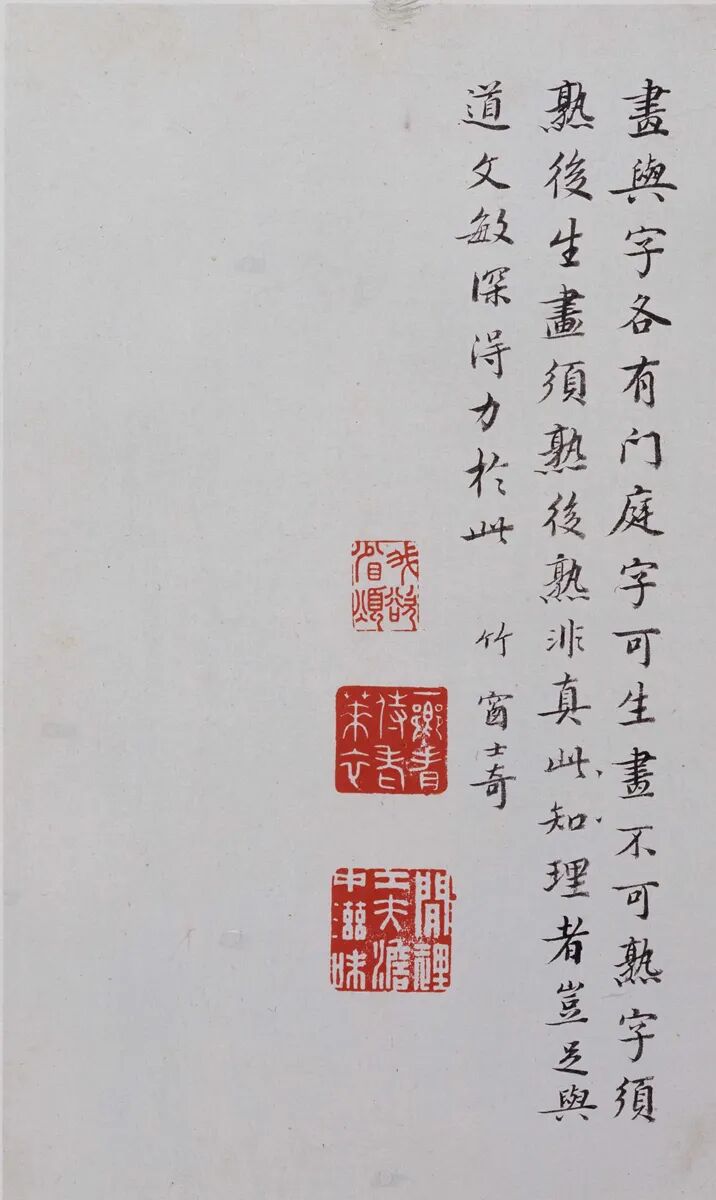 畫與字各有门庭字可生畫不可熟字須
熟後生畫須熟後熟非真此知理者豈足與
道文敏深得力於此 竹窗士奇
閒裡
工夫澹
中滋味